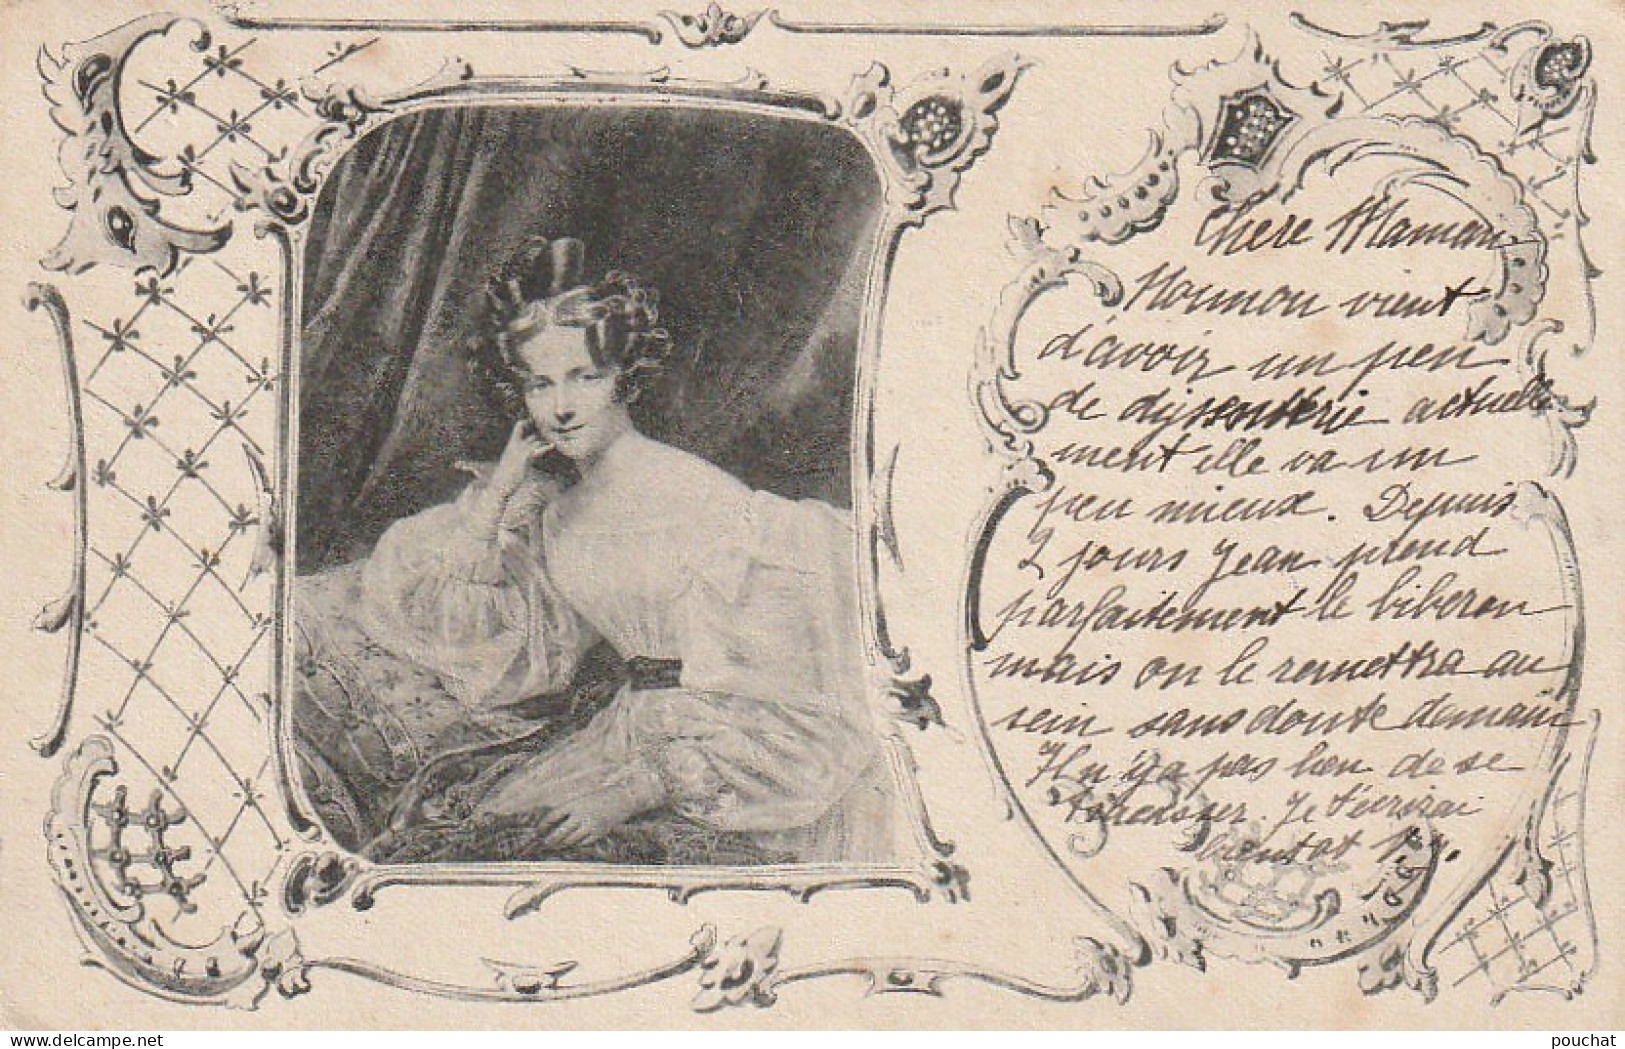 Chere Maman
Nounou vient
d'avoir un peu
de dyssenterie actuelle
ment elle va un
peu mieux. Depuis
2 jours Jean prend
parfaitement le biberon
mais on le remettra au
sein sans doute demain
Il n'y a pas lieu de se
tracasser. Je t'écrirai
bientot
www.delcampe.net
pouchat